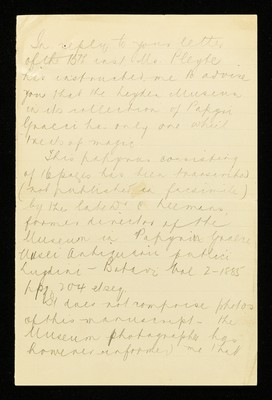 In reply to your letter
of the 15th inst Mr. Pleyte
has instructed me to advise
you that the Leyden Museum
in its collection of Papyri
Graeci has only one which
treats of magic.
This papyrus consisting
of 16 pages has been transcribed
(not published in facsimile)
by the late Dr C. Leemans
former director of the
Museum in Papyri Graeci
Musei Antiquarii publici
Lugduni - Batavi Vol 2-1885
pp. 204 etseq
It does not comprise photos
of this manuscript - the
Museum photographer has
however informed me that